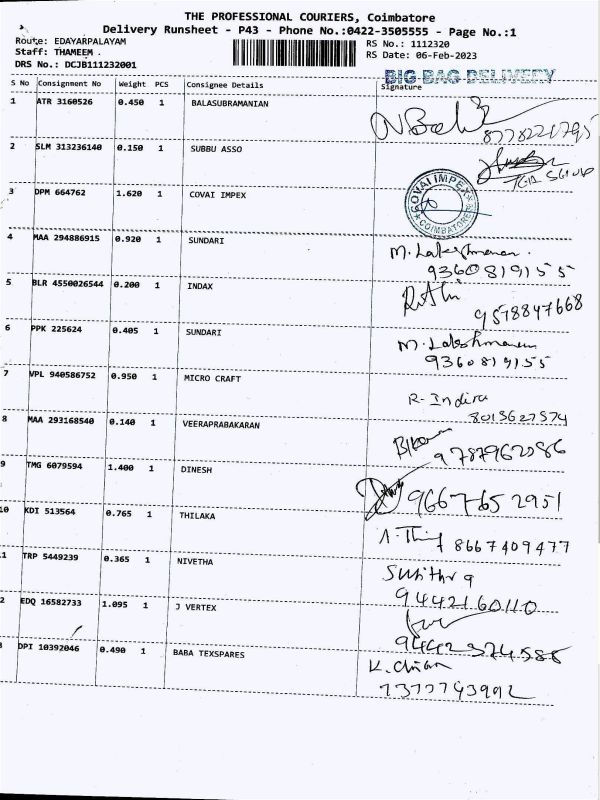 THE PROFESSIONAL COURIERS, Coimbatore
Delivery Runsheet - P43 - Phone No.:0422-3505555 - Page No.:1
Route: EDAYARPALAYAM
Staff: THAMEEM .
DRS No.: DCJB111232001
RS No.: 1112320
RS Date: 06-Feb-2023
BIG BAG DELIVERY
S No Consignment No Weight PCS Consignee Details Signature
1 ATR 3160526 0.450 1 BALASUBRAMANIAN
8778221795
2 SLM 313236140 0.150 1 SUBBU ASSO
3 DPM 664762 1.620 1 COVAI IMPEX
COVAI IMPEX COIMBATORE
4 MAA 294886915 0.920 1 SUNDARI M. Lakshmanan.
9360819155
5 BLR 4550026544 0.200 1 INDAX
9578847668
6 PPK 225624 0.405 1 SUNDARI M. Lakshmanan
9360819155
7 VPL 940586752 0.950 1 MICRO CRAFT R- Indira
8015627574
8 MAA 293168540 0.140 1 VEERAPRABAKARAN
9787962086
9 TMG 6079594 1.400 1 DINESH
9667652951
10 KDI 513564 0.765 1 THILAKA
8667409477
1 TRP 5449239 0.365 1 NIVETHA Sunithra
9442160110
2 EDQ 16582733 1.095 1 J VERTEX
9442374586
3 DPI 10392046 0.490 1 BABA TEXSPARES